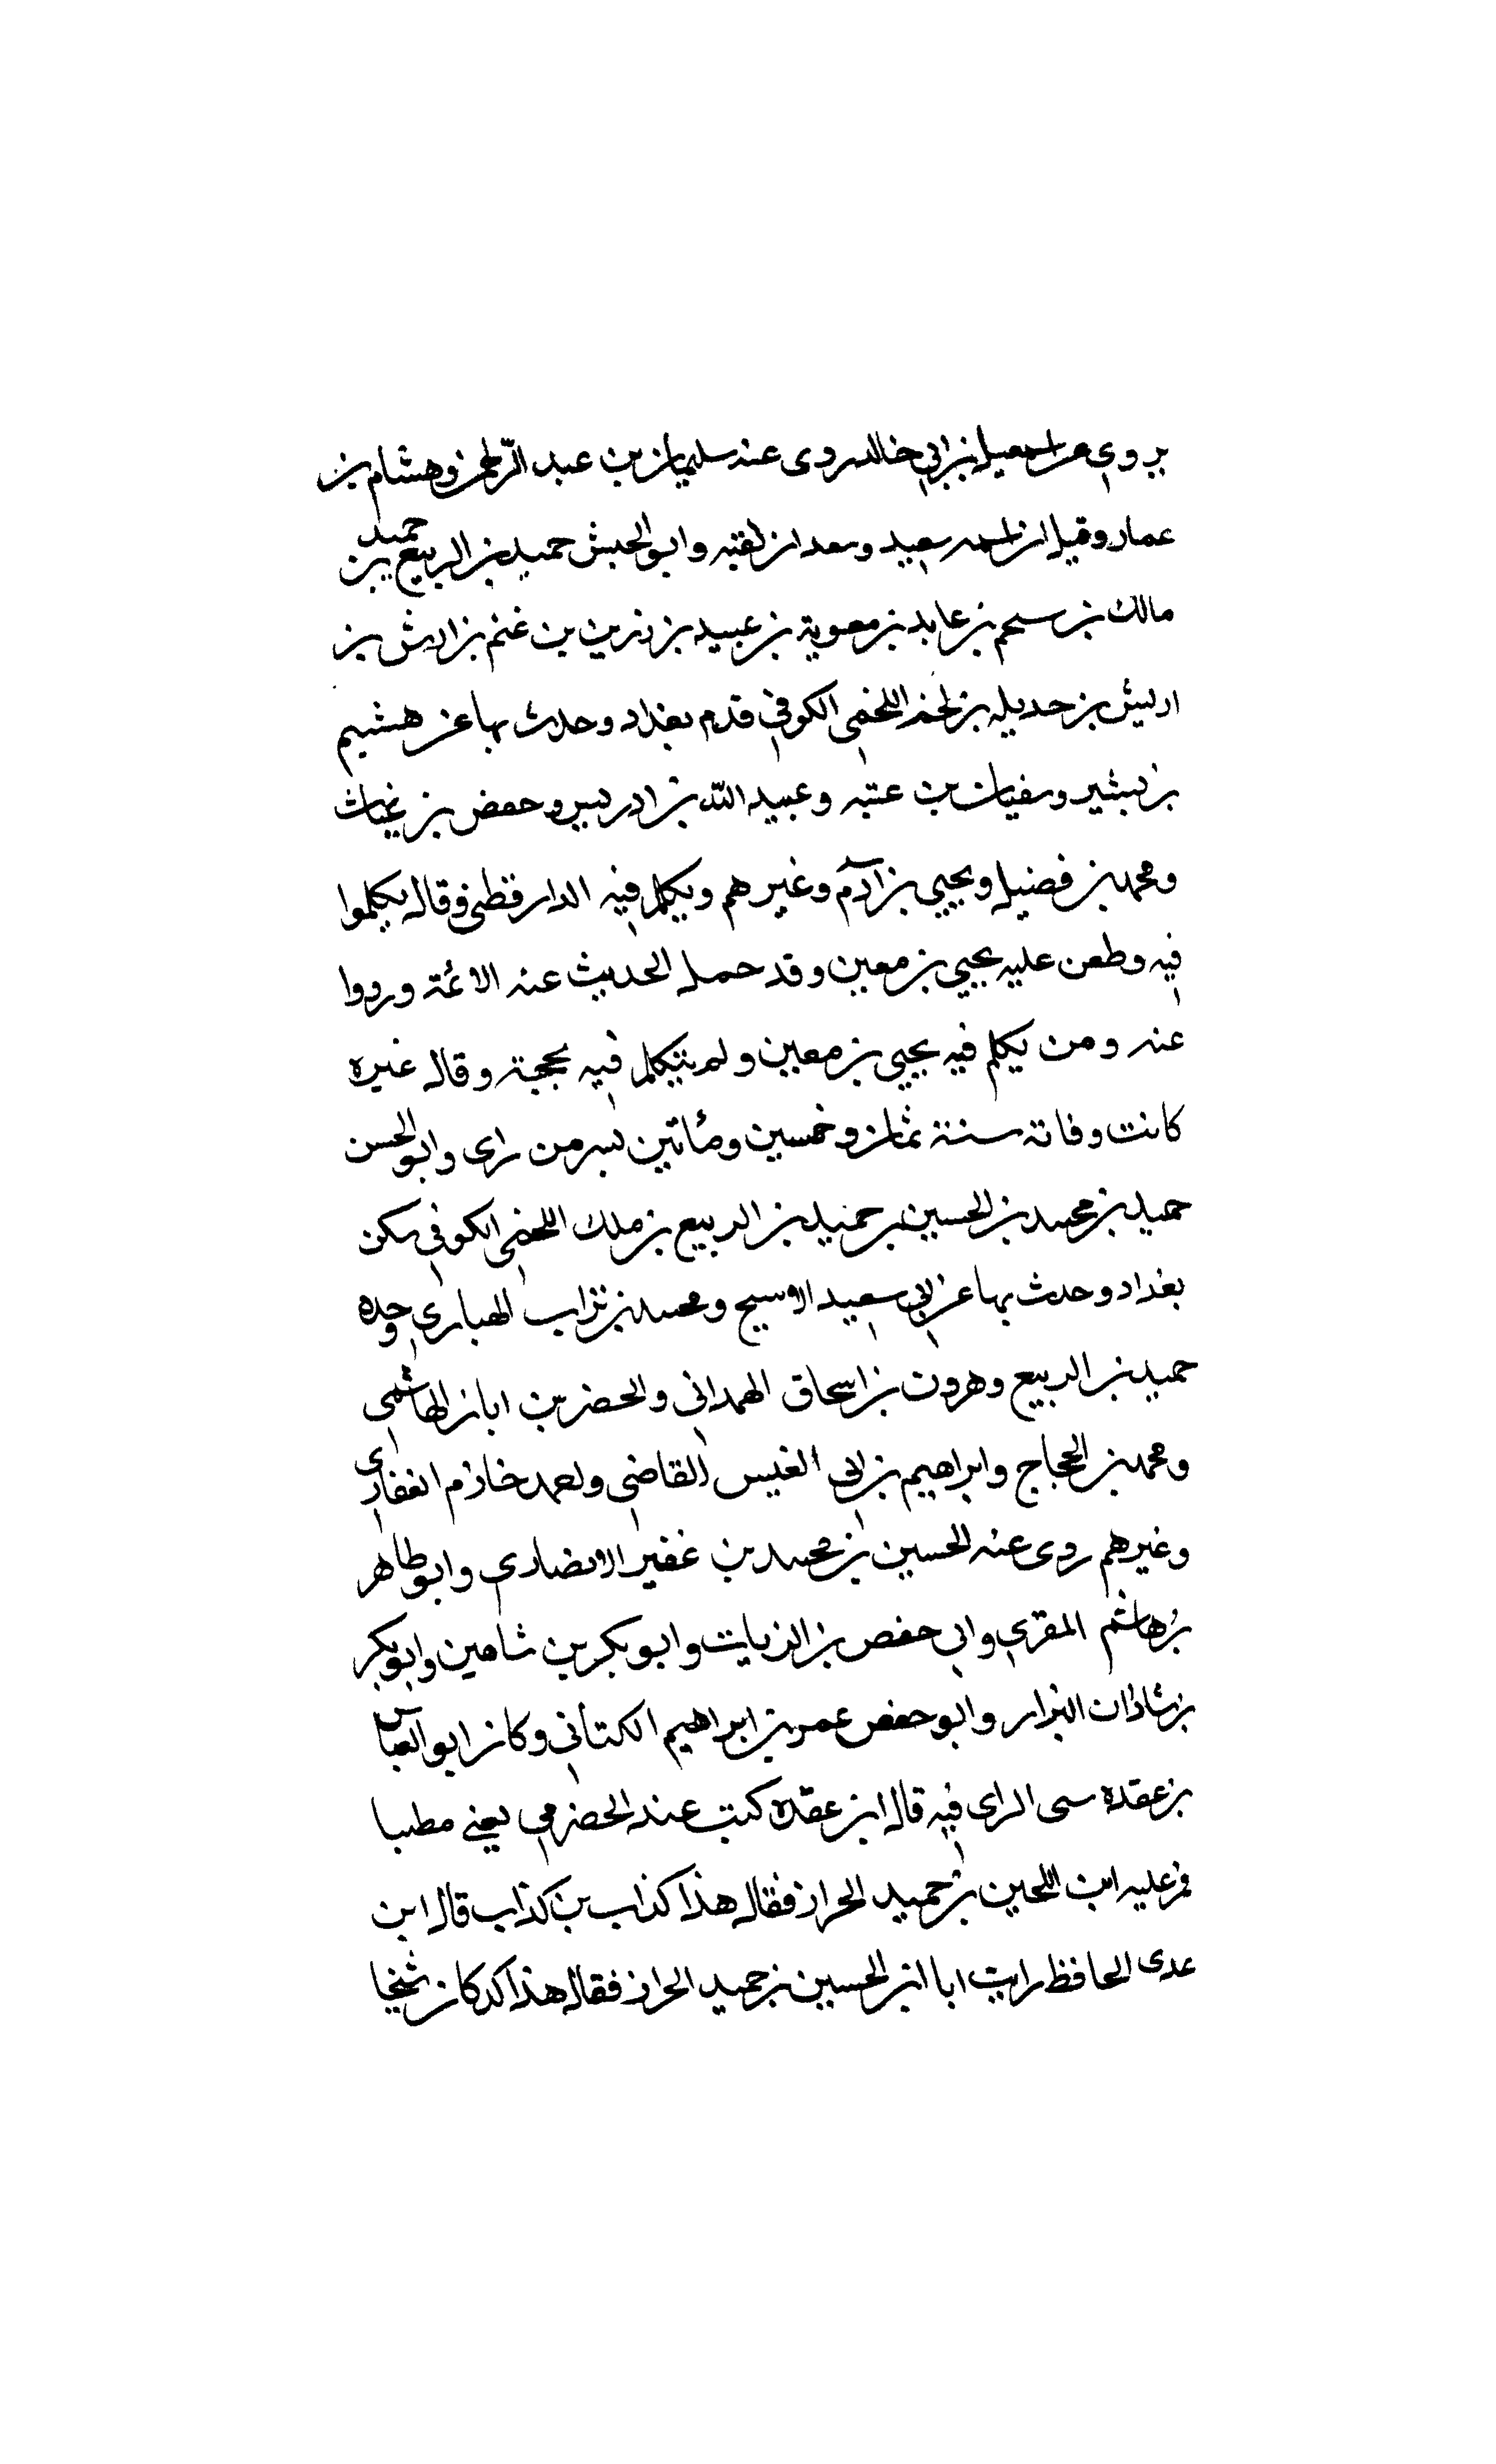 يروى عن اسمعيل بن ابي خالد روى عنه سليمان بن عبد الرحمن وهشام بن
عمار وقيل ان اسمه سعيد وسعدان لقبه وابو الحسن حميد بن الربيع بن حميد بن
مالك بن سحيم بن عايد بن معوية بن عبيد بن زر بن غنم بن اريش بن
اريش بن حديله بن لخم اللخمي الكوفي قدم بغداد وحدث بها عن هشيم
بن بشير وسفيان بن عتبه وعبيد الله بن ادريس وحفص بن غياث
ومحمد بن فضيل ويحيى بن آدم وغيرهم وتكلم فيه الدارقطني وقال تكلموا
فيه وطعن عليه يحيى بن معين وقد حمل الحديث عنه الائمة ورووا
عنه ومن تكلم فيه يحيى بن معين ولم يتكلم فيه بحجة وقال غيره
كانت وفاته سنة ثمان وخمسين ومأتين بسر من راى وابو الحسن
حميد بن محمد بن الحسين بن حميد بن الربيع بن ملك اللخمي الكوفي سكن
بغداد وحدث بها عن ابي سعيد الاشج ومحمد بن ثواب الهباري وجده
حميد بن الربيع وهرون بن اسحاق الهمداني والحضر بن ابان الهاشمي
ومحمد بن الحجاج وابراهيم بن ابي العنبس القاضي واحمد خازم الغفاري
وغيرهم روى عنه الحسين بن محمد بن غفير الانصاري وابو طاهر
بن هاشم المقري وابي حفص بن الزيات وابو بكر بن شاهين وابو بكر
بن شاذان البزار وابو حفص عمر بن ابراهيم الكتاني وكان ابو العباس
بن عقده سى الراى فيه قال ابن عقدة كنت عند الحضرمي يعني مطينا
فمر عليه ابن الحسين بن حميد الخزاز فقال هذا كذاب بن كذاب قال ابن
عدى الحافظ رايت ابا ابن الحسين بن حميد الخزاز فقال هذا كذا كان شيخا